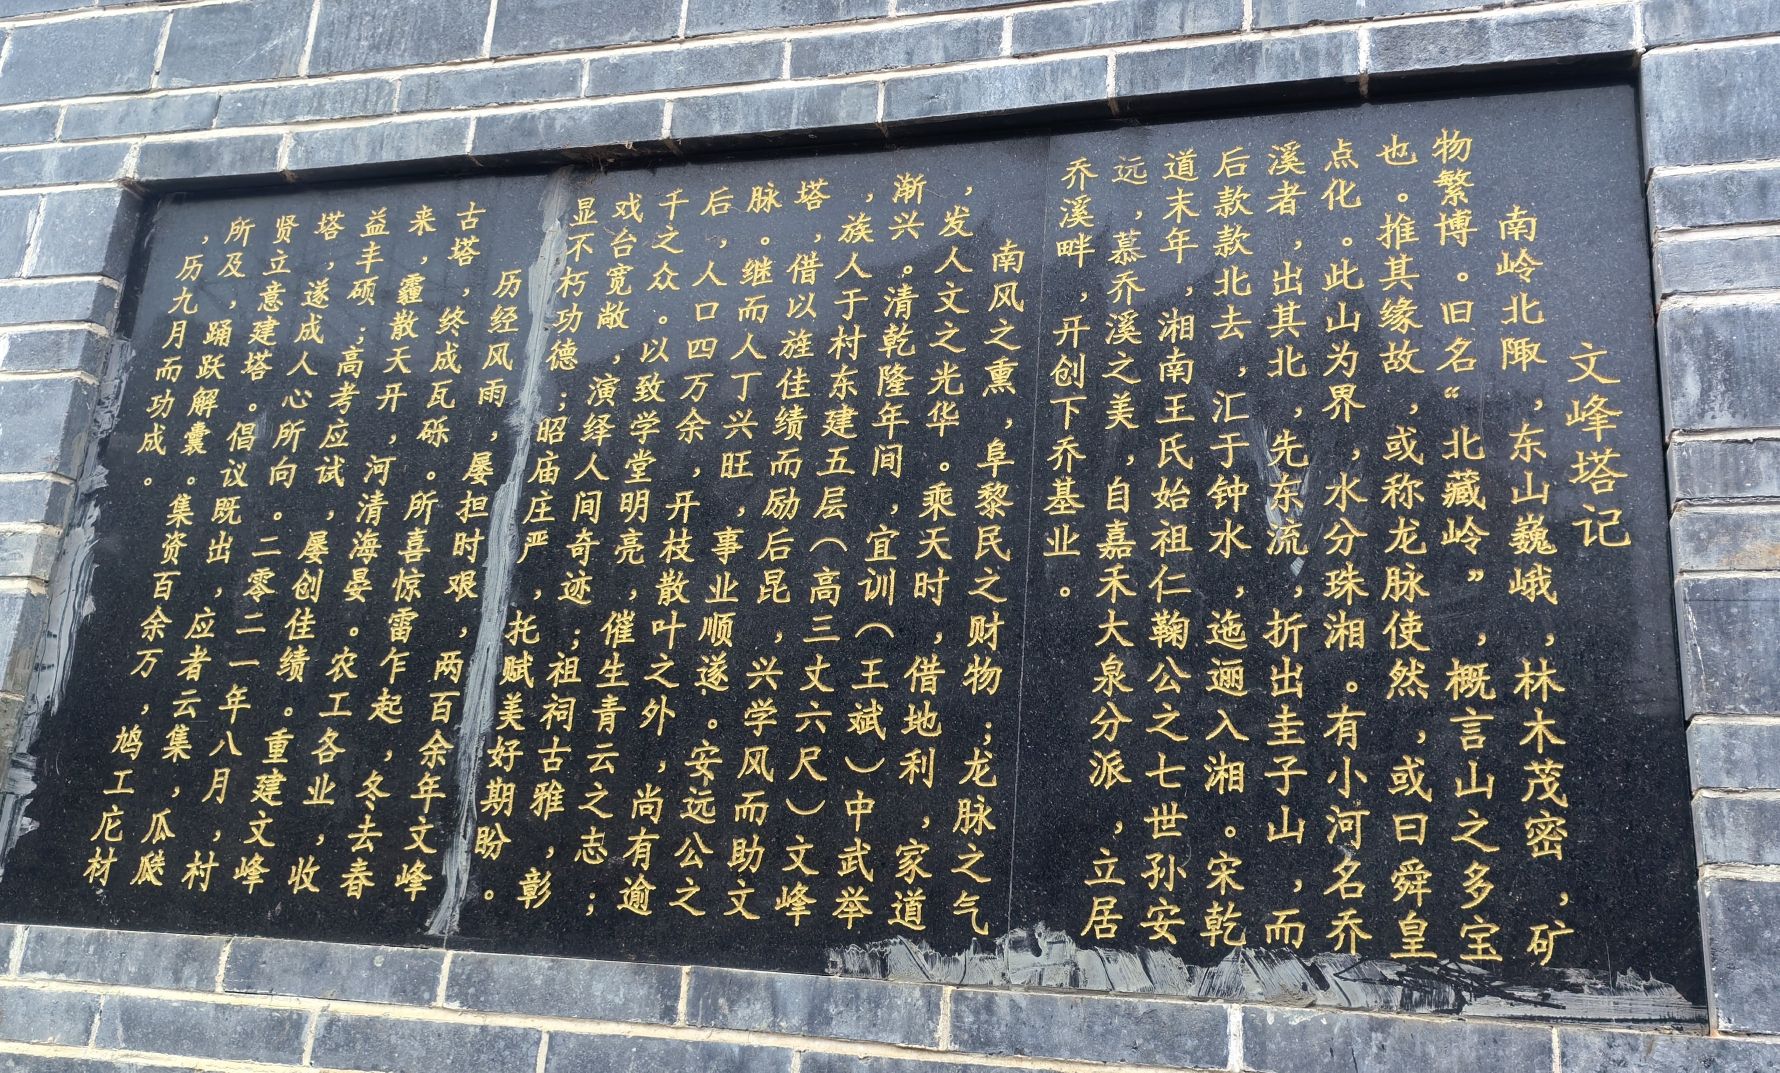 文峰塔记
南岭北陬，东山巍峨，林木茂密，矿
物繁博。旧名“北藏岭”，概言山之多宝
也。推其缘故，或称龙脉使然，或曰舜皇
点化。此山为界，水分珠湘。有小河名乔
溪者，出其北，先东流，折出圭子山，而
后款款北去，汇于钟水，迤逦入湘。宋乾
道末年，湘南王氏始祖仁鞠公之七世孙安
远，慕乔溪之美，自嘉禾大泉分派，立居
乔溪畔，开创下乔基业。
南风之熏，阜黎民之财物；龙脉之气
，发人文之光华。乘天时，借地利，家道
渐兴。清乾隆年间，宜训（王斌）中武举
，族人于村东建五层（高三丈六尺）文峰
塔，借以旌佳绩而励后昆，兴学风而助文
脉。继而人丁兴旺，事业顺遂。安远公之
后，人口四万余，开枝散叶之外，尚有逾
千之众。以致学堂明亮，催生青云之志；
戏台宽敞，演绎人间奇迹；祖祠古雅，彰
显不朽功德；昭庙庄严，托赋美好期盼。
历经风雨，屡担时艰，两百余年文峰
古塔，终成瓦砾。所喜惊雷乍起，冬去春
来，霾散天开，河清海晏。农工各业，收
益丰硕；高考应试，屡创佳绩。重建文峰
塔，遂成人心所向。二零二一年八月，村
贤立意建塔。倡议既出，应者云集，瓜瓞
所及，踊跃解囊。集资百余万，鸠工庀材
，历九月而功成。